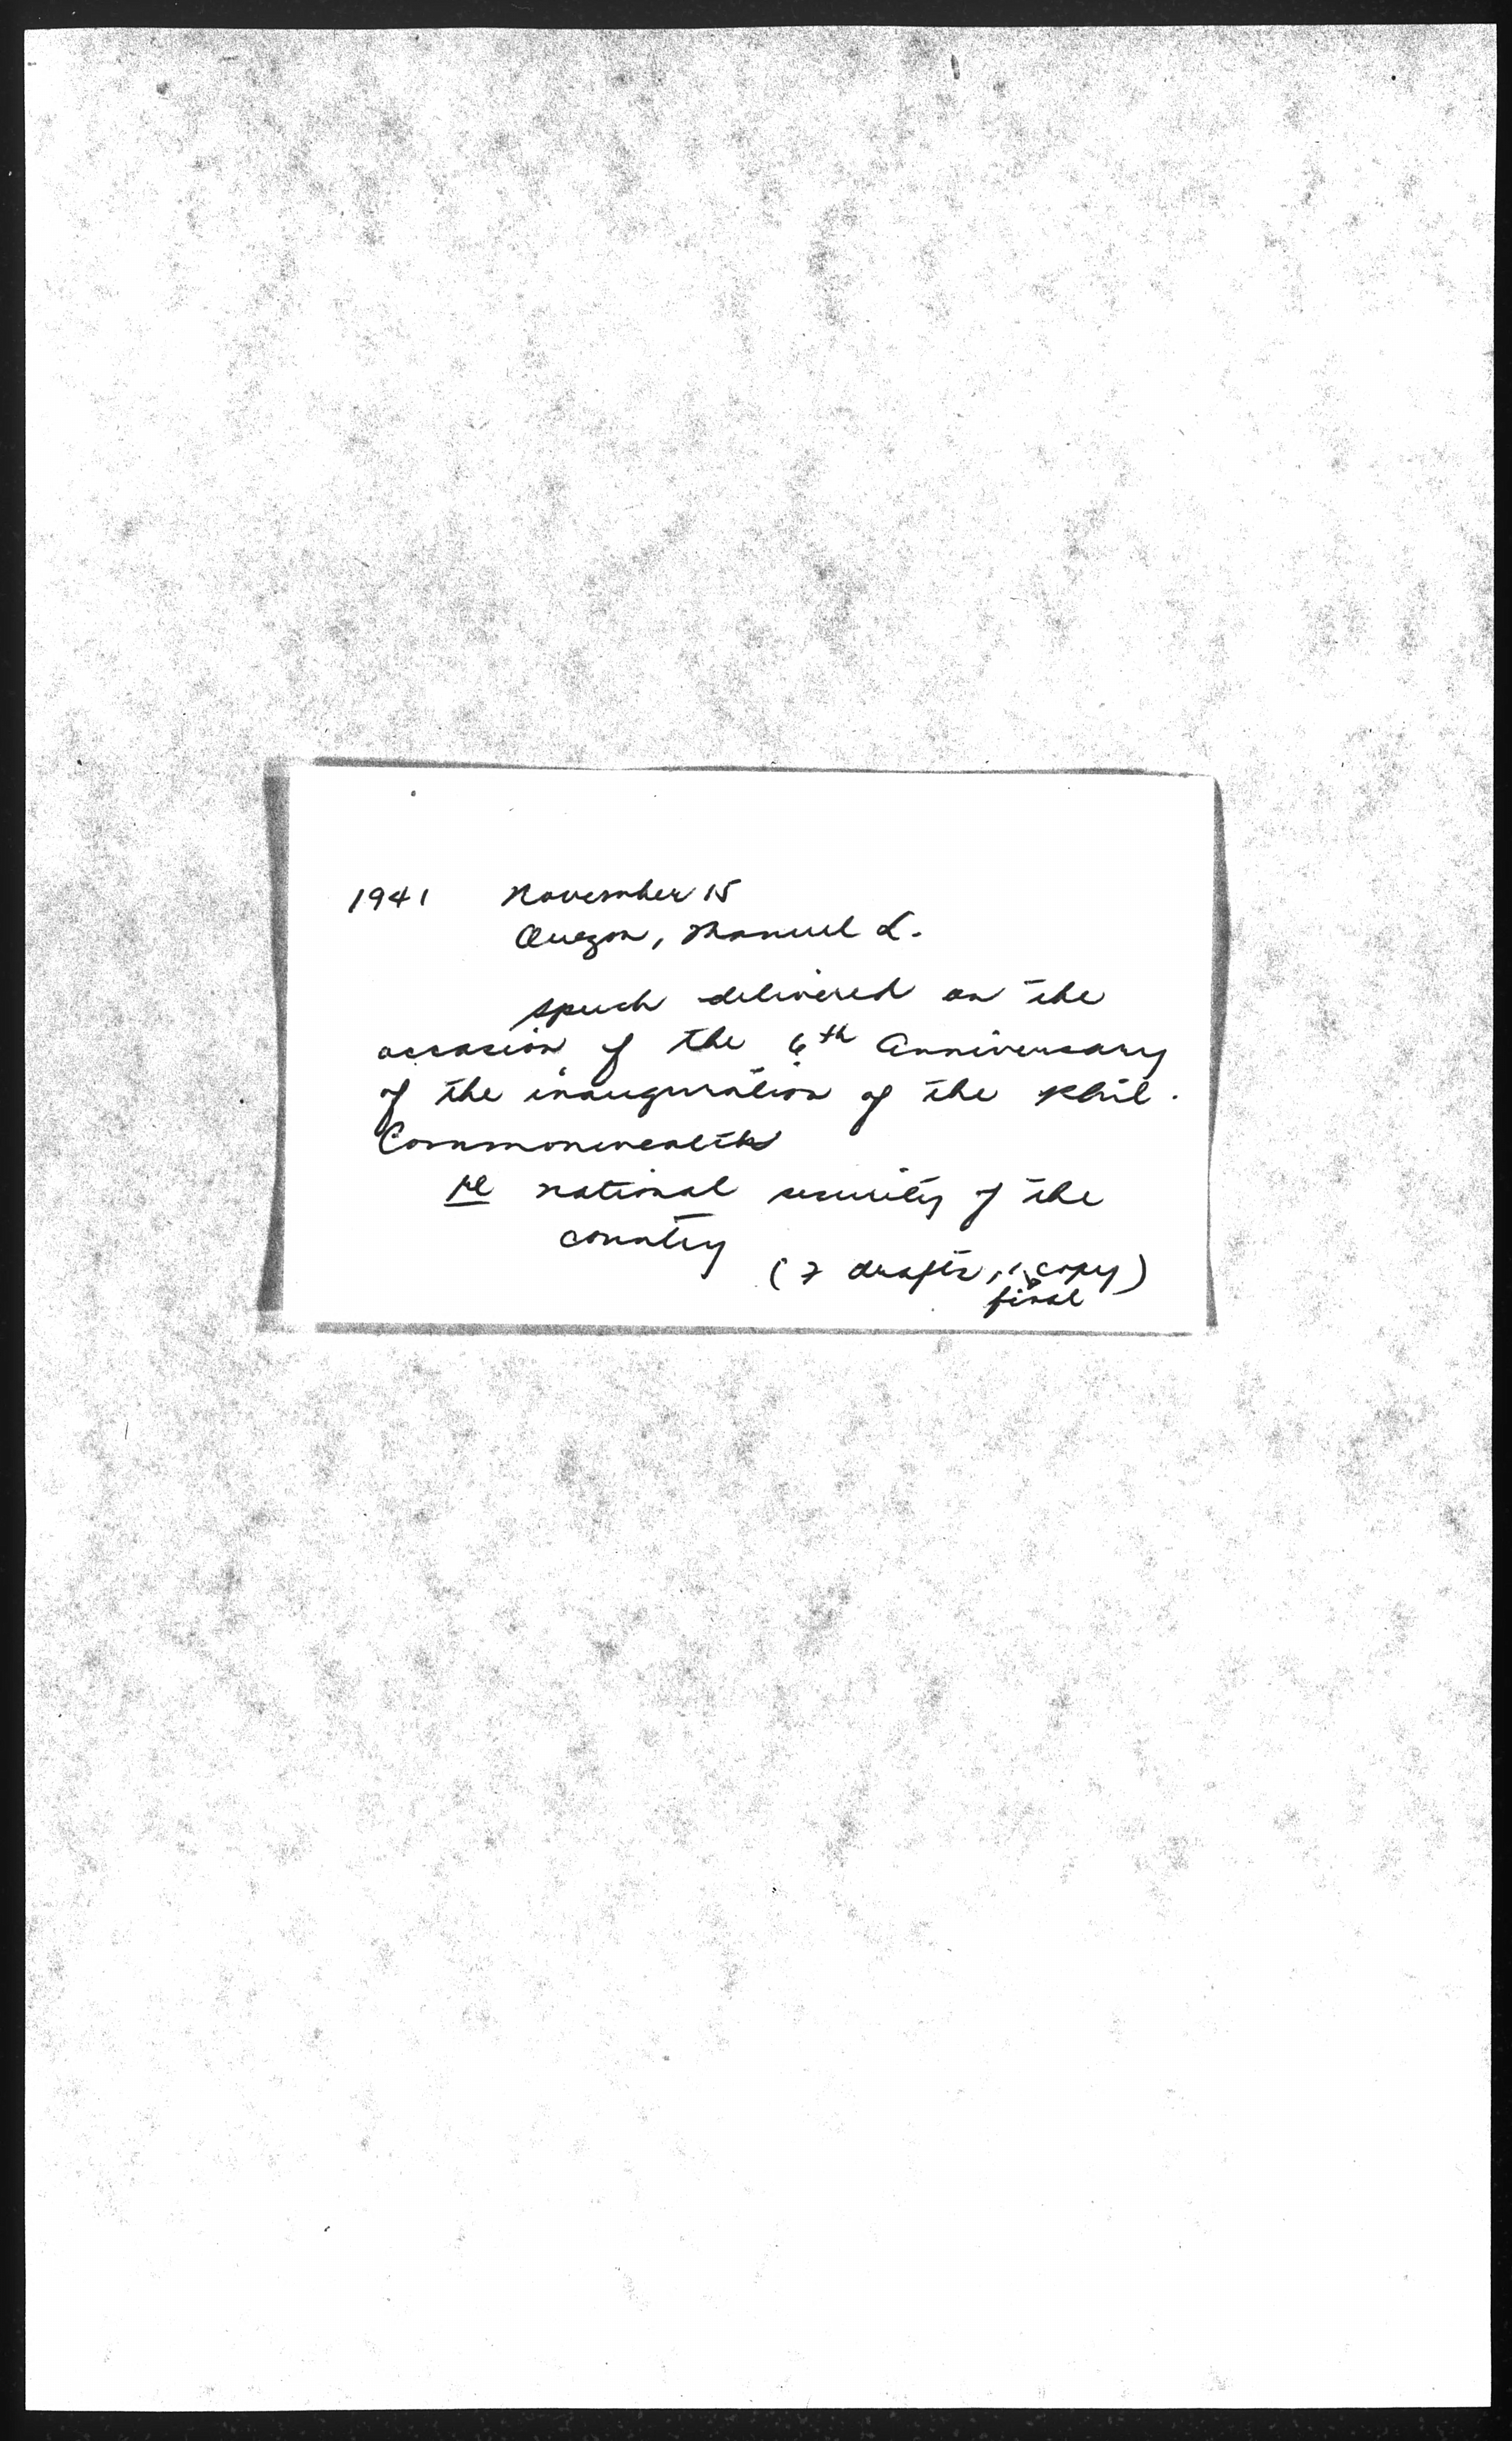 1941 November 15
Quezon, Manuel L.
speech delivered on the
occasion of the 6th Anniversary
of the inauguration of the Phil.
Commonwealth
re national security of the
country
(7 drafts, 1 final copy)